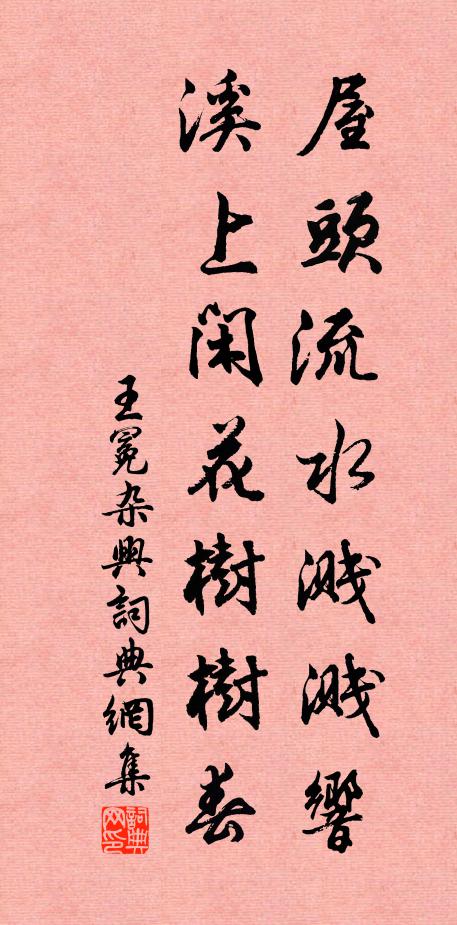 屋頭流水濺濺響
溪上閑花樹樹春
王冕杂興詞典網集
詞典网印